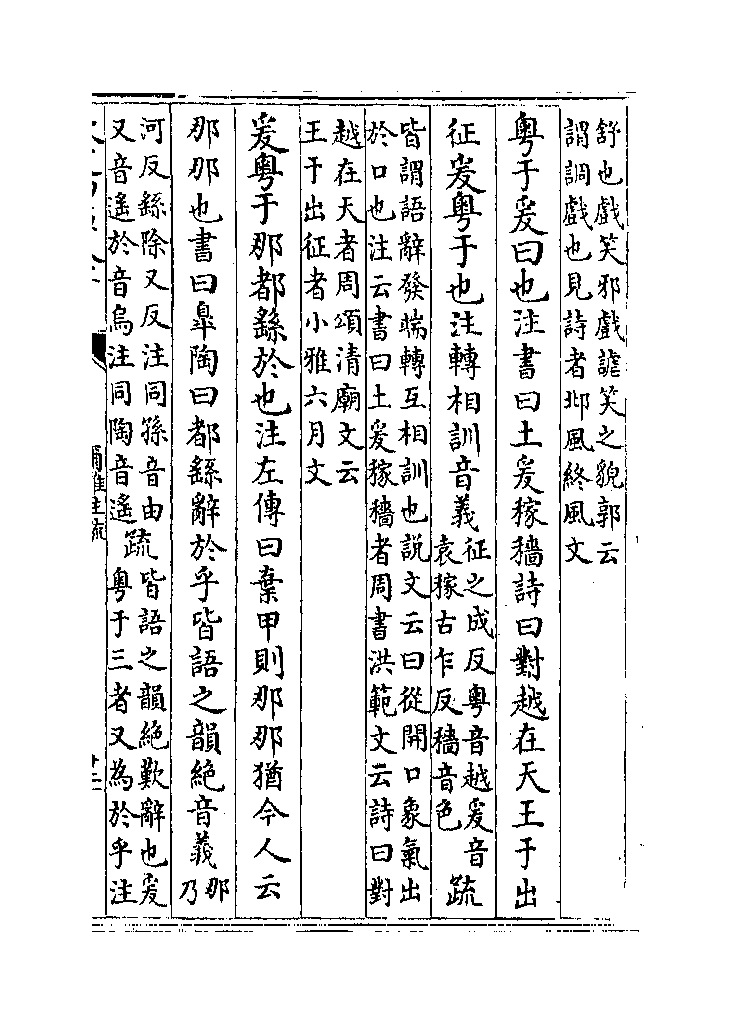 舒也戲笑邪戲謔笑之貌郭云
謂調戲也見詩者邶風終風文
粵于爰曰也注書曰土爰稼穡詩曰對越在天王于出
征爰粵于也注轉相訓音義征之成反粵音越爰音袁稼古乍反穡音色疏
皆謂語辭發端轉互相訓也説文云曰從開口象氣出
於口也注云書曰土爰稼穡者周書洪範文云詩曰對
越在天者周頌清廟文云
王于出征者小雅六月文
爰粵于那都繇於也注左傳曰棄甲則那那猶今人云
那那也書曰臯陶曰都繇辭於乎皆語之韻絶音義那乃
河反繇除又反注同孫音由
又音遥於音烏注同陶音遥疏皆語之韻絶歎辭也爰
粵于三者又為於乎注
爾雅注疏